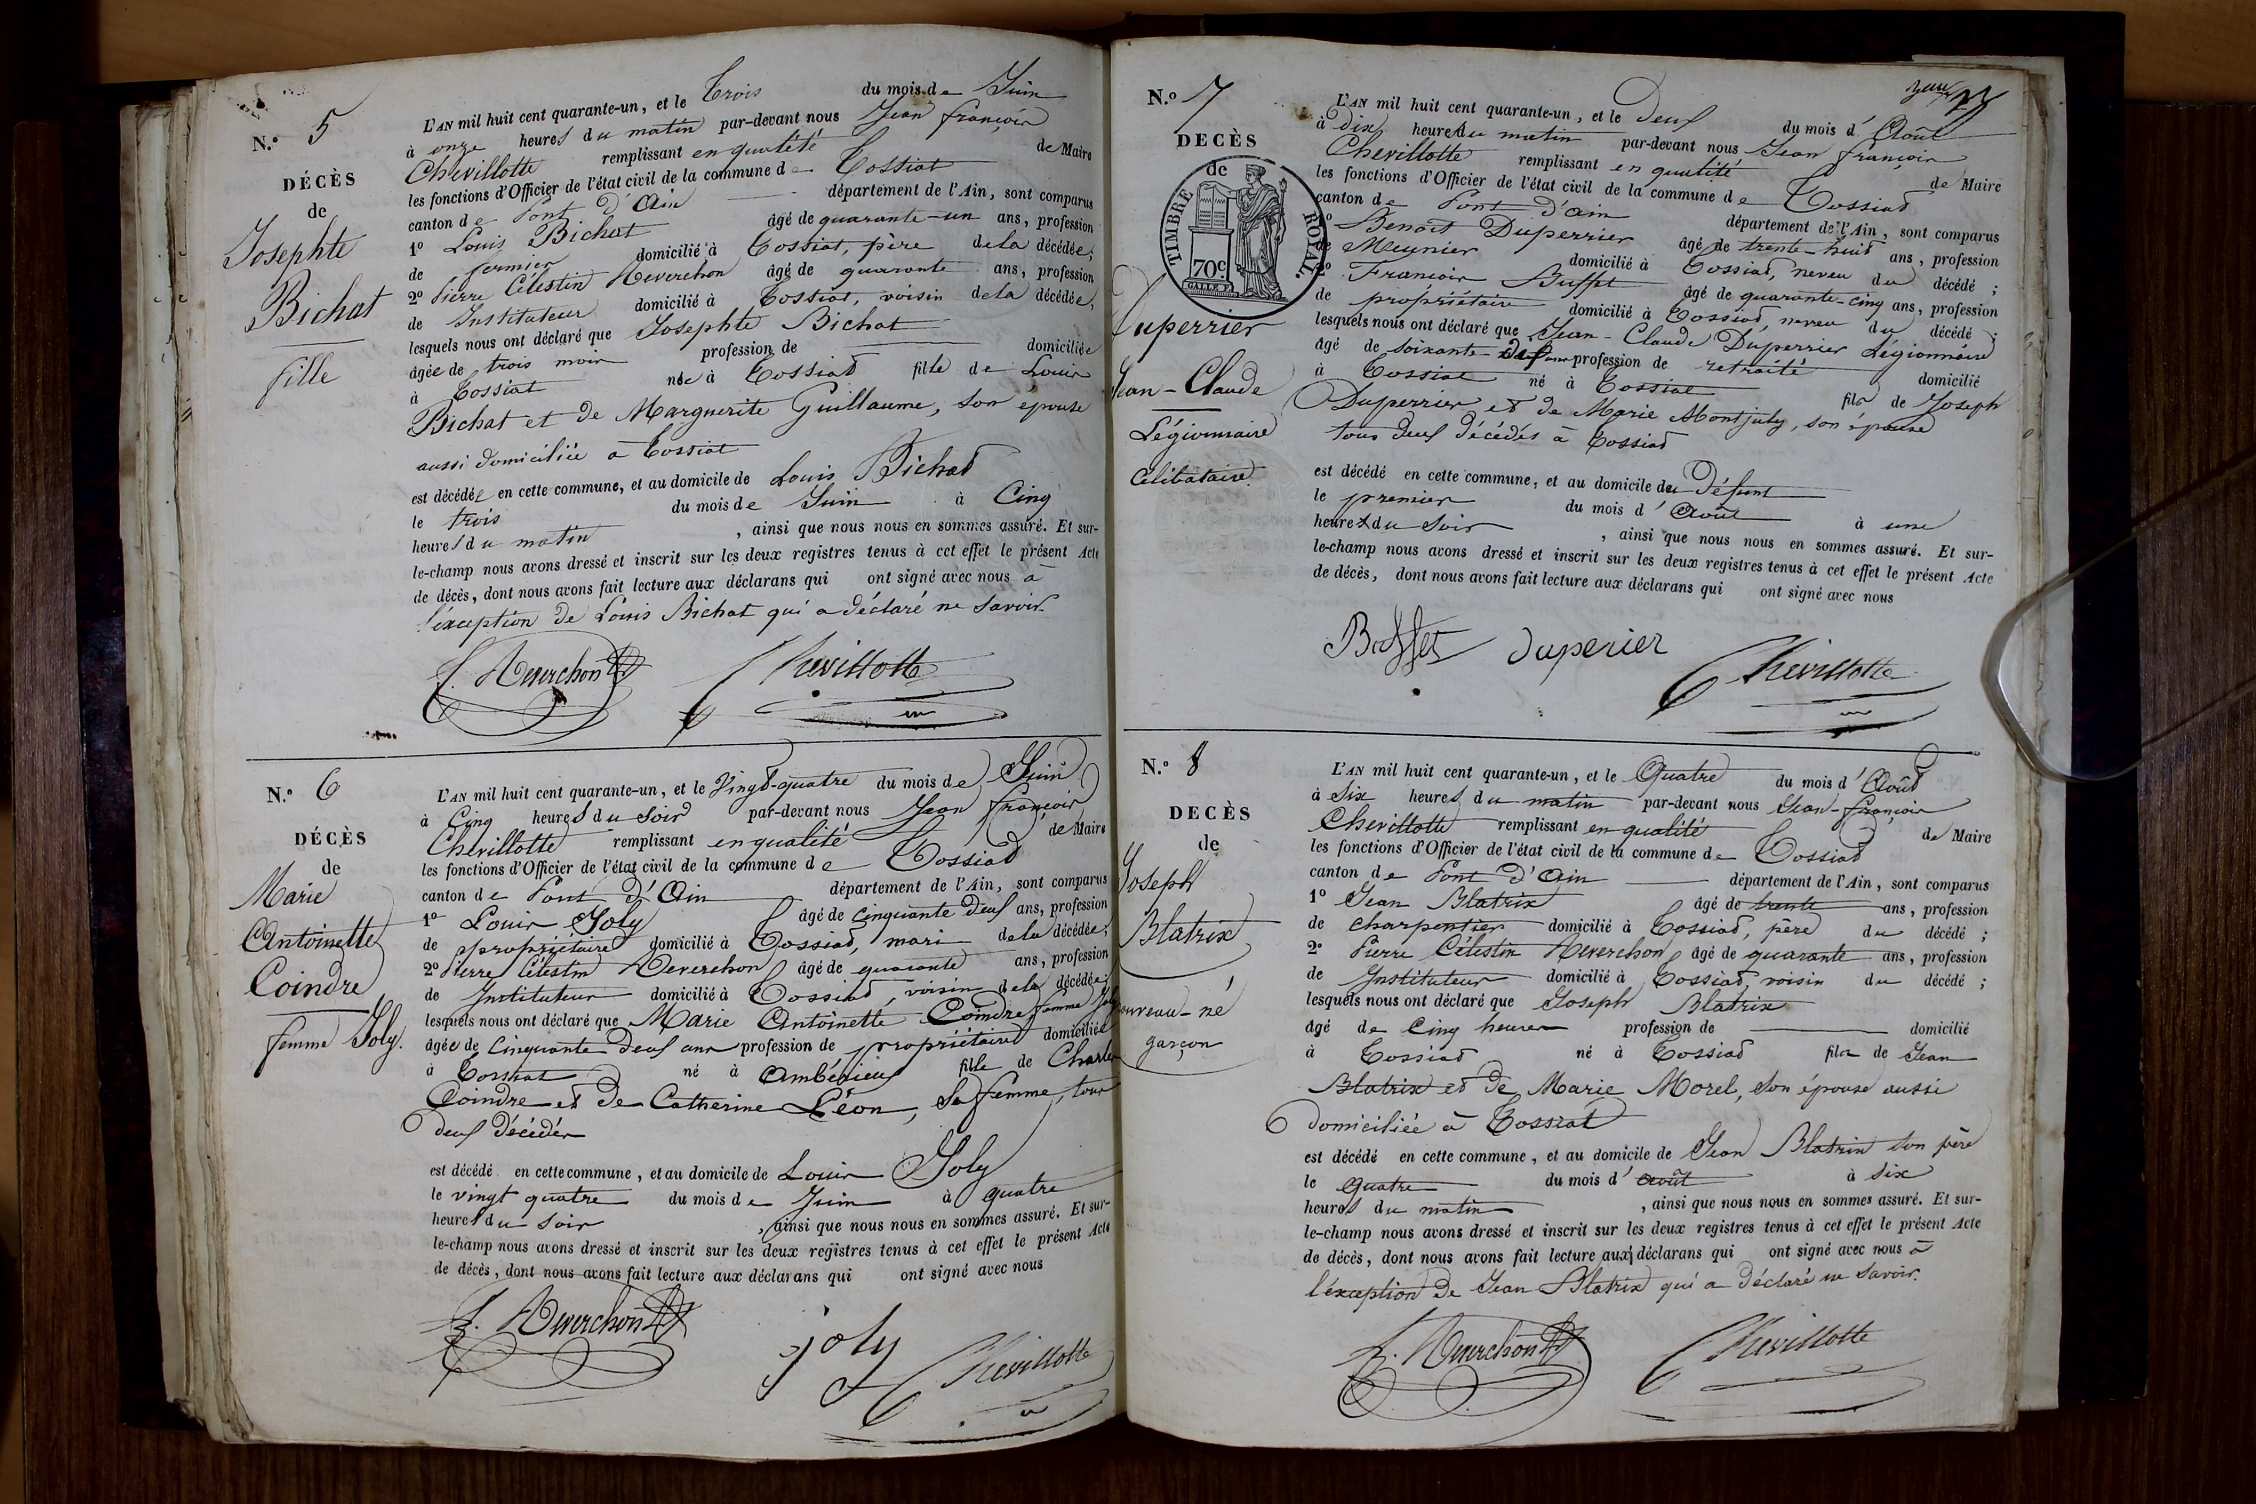 N.º 5
DÉCÈS
de
Josephte
Bichat
fille
L'AN mil huit cent quarante-un, et le Trois du mois de Juin
à onze heures du matin par-devant nous Jean françois
Chevillotte remplissant en qualité de Maire
les fonctions d'Officier de l'état civil de la commune de Tossiat
canton de Pont d'Ain département de l'Ain, sont comparus
1º Louis Bichat âgé de quarante-un ans, profession
de fermier domicilié à Tossiat, père de la décédée;
2º Pierre Célestin Reverchon âgé de quarante ans, profession
de Instituteur domicilié à Tossiat, voisin de la décédée,
lesquels nous ont déclaré que Josephte Bichat
âgée de trois mois profession de domiciliée
à Tossiat née à Tossiat fille de Louis
Bichat et de Marguerite Guillaume, son épouse
aussi domiciliée à Tossiat
est décédée en cette commune, et au domicile de Louis Bichat
le trois du mois de Juin à Cinq
heures du matin, ainsi que nous nous en sommes assuré. Et sur-
le-champ nous avons dressé et inscrit sur les deux registres tenus à cet effet le présent Acte
de décès, dont nous avons fait lecture aux déclarans qui ont signé avec nous à
l'exception de Louis Bichat qui a déclaré ne savoir.
Reverchon Chevillotte
N.º 6
DÉCÈS
de
Marie
Antoinette
Coindre
femme Joly.
L'AN mil huit cent quarante-un, et le Vingt-quatre du mois de Juin
à Cinq heures du soir par-devant nous Jean françois
Chevillotte remplissant en qualité de Maire
les fonctions d'Officier de l'état civil de la commune de Tossiat
canton de Pont d'Ain département de l'Ain, sont comparus
1º Louis Joly âgé de cinquante deux ans, profession
de propriétaire domicilié à Tossiat, mari de la décédée;
2º Pierre Célestin Reverchon âgé de quarante ans, profession
de Instituteur domicilié à Tossiat, voisin de la décédée;
lesquels nous ont déclaré que Marie Antoinette Coindre femme Joly
âgée de Cinquante deux ans profession de propriétaire domiciliée
à Tossiat né à Ambérieux fille de Charles
Coindre et de Catherine Léon, sa femme, tous
deux décédés
est décédé en cette commune, et au domicile de Louis Joly
le vingt quatre du mois de Juin à quatre
heures du soir, ainsi que nous nous en sommes assuré. Et sur-
le-champ nous avons dressé et inscrit sur les deux registres tenus à cet effet le présent Acte
de décès, dont nous avons fait lecture aux déclarans qui ont signé avec nous
Reverchon joly Chevillotte
N.º 7
DECÈS
de
TIMBRE ROYAL.
70c
Duperrier
Jean-Claude
Légionnaire
Célibataire.
L'AN mil huit cent quarante-un, et le Deux du mois d'Août
à dix heures du matin par-devant nous Jean françois
Chevillotte remplissant en qualité de Maire
les fonctions d'Officier de l'état civil de la commune de Tossiat
canton de Pont d'Ain département de l'Ain, sont comparus
1º Benoît Duperrier âgé de trente-huit ans, profession
de Meunier domicilié à Tossiat, neveu du décédé;
2º François Buffet âgé de quarante-cinq ans, profession
de propriétaire domicilié à Tossiat, neveu du décédé;
lesquels nous ont déclaré que Jean-Claude Duperrier Légionnaire
âgé de soixante- ans profession de retraité domicilié
à Tossiat né à Tossiat fils de Joseph
Duperrier et de Marie Montjuly, son épouse
tous deux décédés à Tossiat
est décédé en cette commune, et au domicile du Défunt
le premier du mois d'Août à une
heures du soir, ainsi que nous nous en sommes assuré. Et sur-
le-champ nous avons dressé et inscrit sur les deux registres tenus à cet effet le présent Acte
de décès, dont nous avons fait lecture aux déclarans qui ont signé avec nous
Buffet Duperier Chevillotte
N.º 8
DECÈS
de
Joseph
Blatrix
nouveau-né
garçon
L'AN mil huit cent quarante-un, et le Quatre du mois d'Août
à Six heures du matin par-devant nous Jean-françois
Chevillotte remplissant en qualité de Maire
les fonctions d'Officier de l'état civil de la commune de Tossiat
canton de Pont d'Ain département de l'Ain, sont comparus
1º Jean Blatrix âgé de trente ans, profession
de charpentier domicilié à Tossiat, père du décédé;
2º Pierre Célestin Reverchon âgé de quarante ans, profession
de Instituteur domicilié à Tossiat, voisin du décédé;
lesquels nous ont déclaré que Joseph Blatrix
âgé de Cinq heures profession de domicilié
à Tossiat né à Tossiat fils de Jean
Blatrix et de Marie Morel, son épouse aussi
domiciliée à Tossiat
est décédé en cette commune, et au domicile de Jean Blatrix son père
le Quatre du mois d'août à six
heures du matin, ainsi que nous nous en sommes assuré. Et sur-
le-champ nous avons dressé et inscrit sur les deux registres tenus à cet effet le présent Acte
de décès, dont nous avons fait lecture aux déclarans qui ont signé avec nous à
l'exception de Jean Blatrix qui a déclaré ne savoir.
Reverchon Chevillotte